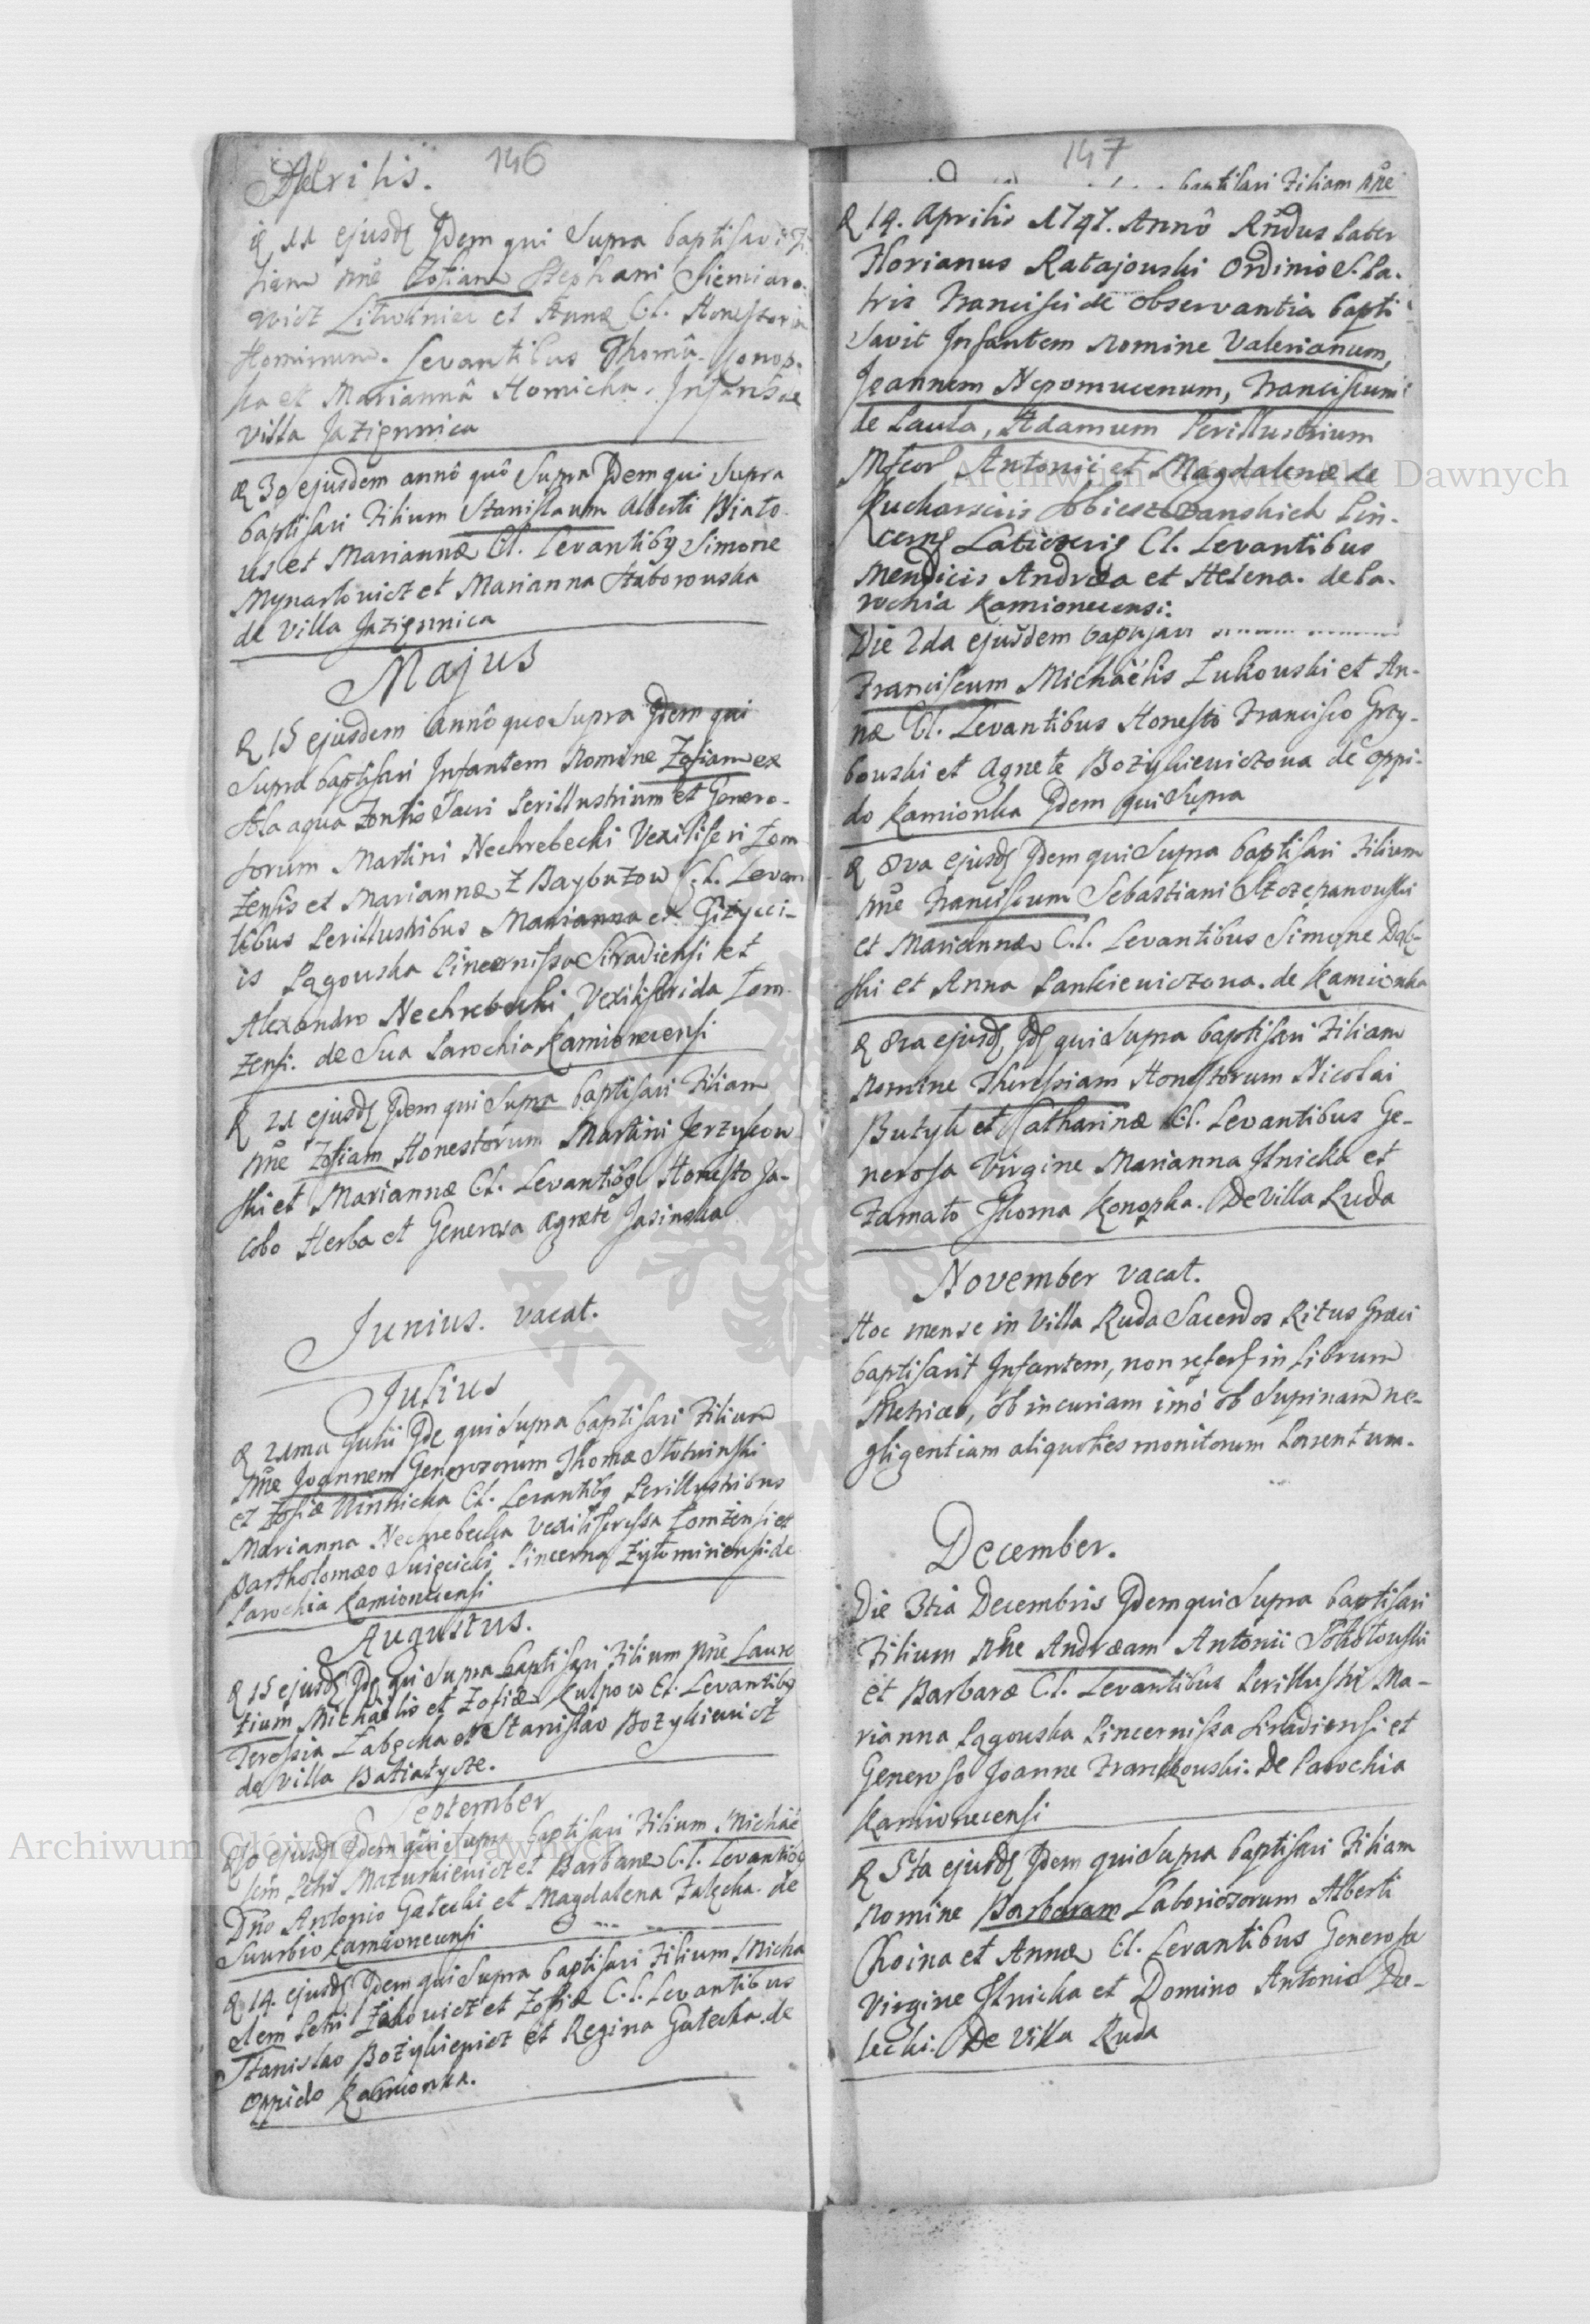 146
Aprilis.
11 ejusd Idem qui Supra baptisavi Fi
liam nne Zofiam Stephani Siemiano
wicz et Annæ C.l. Honestor
Hominum. Levantibus Thomâ Konop-
ka et Mariannâ Homicka. Infans de
Villa Jazienica
30 ejusdem annô quô Supra Idem qui Supra
baptisavi Filium Stanislaum Alberti Biało-
us et Mariannæ C.l. Levantibg Simone
Mynartowicz et Marianna Haborowska
de Villa Jazienica
Majus
15 ejusdem annô quo Supra Idem qui
Supra baptisavi Infantem Nomine Zofiam ex
Sola aqua Fontis Sacri Perillustrium et Genero-
sorum Martini Nechrebecki Vexiliferi Łom
żensis et Mariannæ Z Baybuzow C.l. Levan
tibus Perillustribus Marianna ex
is Łagowska Pincernissa Siradiensi et
Alexandro Nechrebecki Vexiliferida Łom
żensi. de Sua Parochia Kamionecensi
21 ejusd Idem qui Supra baptisavi Filiam
nne Zofiam Honestorum Martini Jerzykow
ski et Mariannæ C.l. Levantibg Honesto Ja-
cobo Herba et Generosa Agnete Jasinska
Junius. vacat.
Julius
21ma Julii Ide qui Supra baptisavi Filium
nne Joannem Generosorum Thomæ Słotwinski
et Zofiæ Winnicka C.l. Levantibg Perillustribus
Marianna Nechrebecka Vexiliferessa Łomżensi et
Bartholomæo Swięcicki Pincerna Żytomiriensi. de
Parochia Kamionecensi
Augustus.
15 ejusd Ide qui Supra baptisavi Filium nne Laure
tium Michaëlis et Zofiæ Kulpow C.l. Levantibg
Teressia Łabęcka et Stanislao Bożykiewicz
de Villa Batiatycze.
September
10 ejusd Idem qui Supra baptisavi Filium Michaë
lem Petri Mazurkiewicz et Barbaræ C.l. Levantibg
Dno Antonio Gałecki et Magdalena Załęcka. de
Suurbio Kamionecensi
14. ejusd Idem qui Supra baptisavi Filium Micha
elem Petri et Zofiæ C.l. Levantibus
Stanislao Bożykiewicz et Regina Gałecka. de
oppido Kamionka.
147
baptisavi Filiam nne
14. Aprilis 1747. Annô Rndus Pater
Florianus Ratajowski Ordinis S. Pa-
tris Francisci de Observantia bapti
savit Infantem Nomine Valerianum,
Joannem Nepomucenum, Franciscum
de Paula, Adamum Perillustrium
Mfcor Antonii et Magdalenæ de
Kucharsciis Pin-
cern Laticzevi C.l. Levantibus
Mendicis Andrea et Helena. de Pa-
rochia Kamionecensi.
Die 2da ejusdem baptisavi
Franciscum Michaëlis Łukowski et An-
næ C.l. Levantibus Honesto Francisco Grzy-
bowski et Agnete Bożykiewiczowa de oppi-
do Kamionka Idem qui Supra
8va ejusd Idem qui Supra baptisavi Filium
nne Franciscum Sebastiani Szczepanowski
et Mariannæ C.l. Levantibus Simone Dąb-
ski et Anna Pankiewiczowa. de Kamionka
8va ejusd Id qui Supra baptisavi Filiam
Nomine Theressiam Honestorum Nicolai
Butyk et Catharinæ C.l. Levantibus Ge-
nerosa Virgine Marianna Ilnicka et
Famato Thoma Konopka. De Villa Ruda
November vacat.
Hoc mense in Villa Ruda Sacerdos Ritus Græci
baptisavit Infantem, non refert in Librum
Metrices, ob incuriam imò ob Supinam ne-
gligentiam aliquoties monitorum Parentum.
December.
Die 3tia Decembris Idem qui Supra baptisavi
Filium nne Andræam Antonii
et Barbaræ C.l. Levantibus Perillustri Ma-
rianna Łagowska Pincernissa Siradiensi et
Generoso Joanne Frankowski. De Parochia
Kamionecensi
5ta ejusd Idem qui Supra baptisavi Filiam
Nomine Barbaram Laboriosorum Alberti
Choina et Annæ C.l. Levantibus Generosa
Virgine Ilnicka et Domino Antonio
De Villa Ruda
Archiwum Główne Akt Dawnych
Archiwum Główne Akt Dawnych